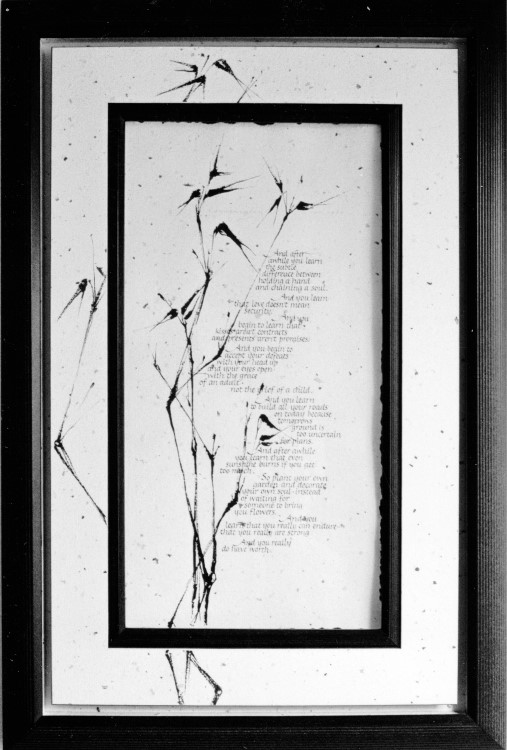 And after
awhile you learn
the subtle
difference between
holding a hand
and chaining a soul.
And you learn
that love doesn't mean
security.
And you
begin to learn that
kisses aren't contracts
and presents aren't promises.
And you begin to
accept your defeats
with your head up
and your eyes open
with the grace
of an adult
not the grief of a child.
And you learn
to build all your roads
on today because
tomorrows
ground is
too uncertain
for plans.
And after awhile
you learn that even
sunshine burns if you get
too much.
So plant your own
garden and decorate
your own soul-instead
of waiting for
someone to bring
you flowers.
And you
learn that you really can endure
that you really are strong
And you really
do have worth.